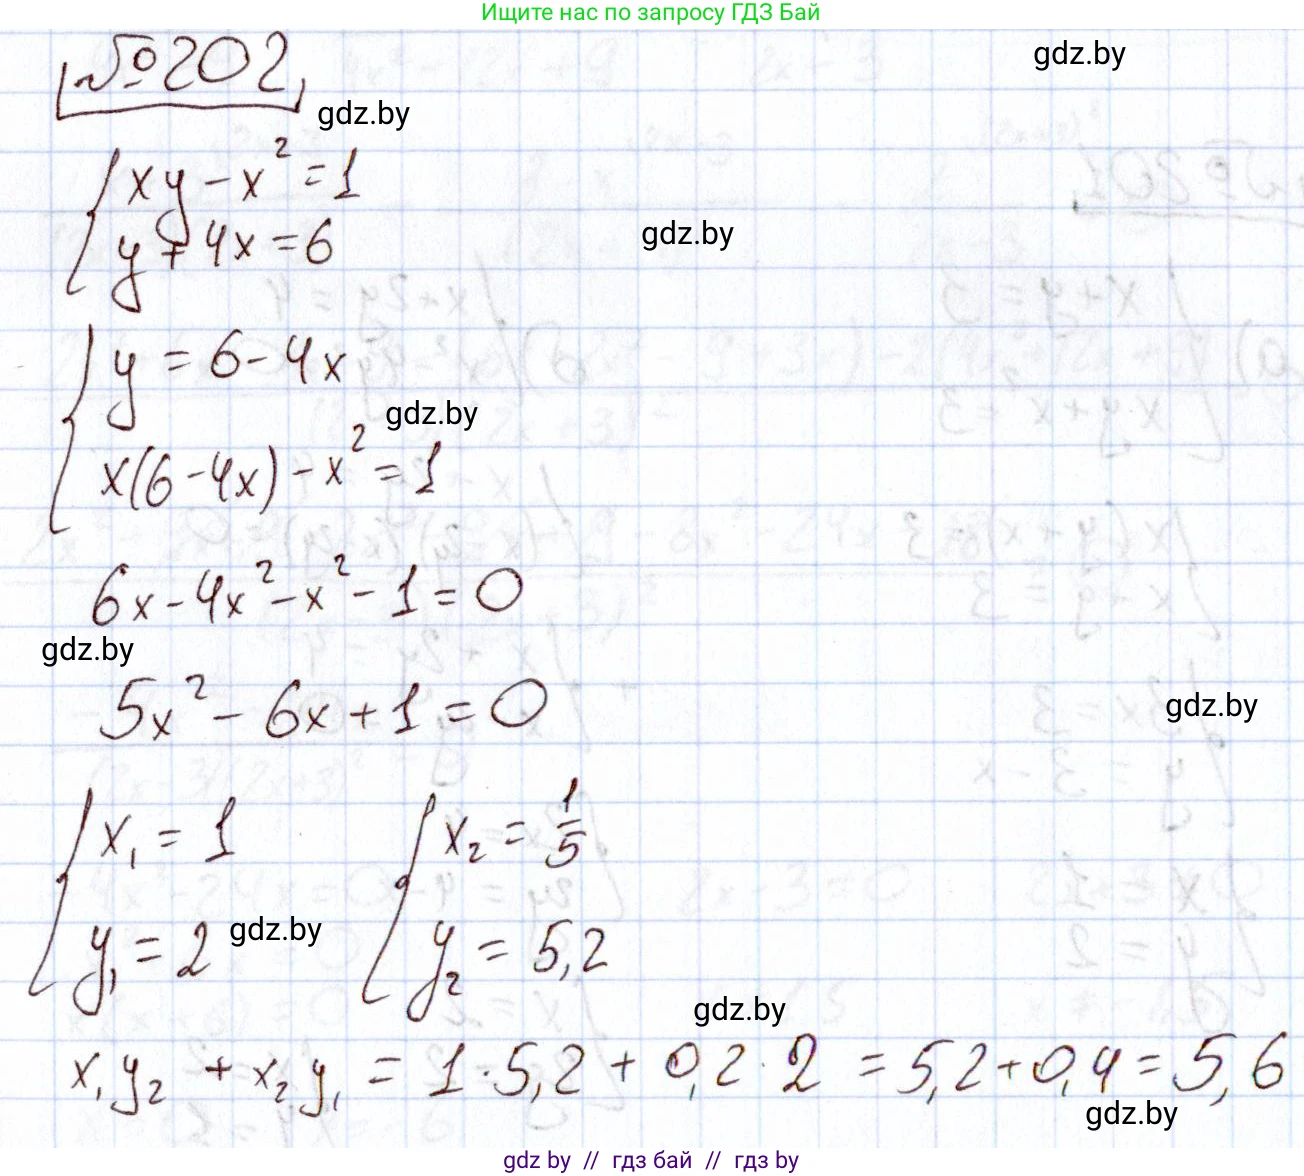 Ищите нас по запросу ГДЗ Бай
№202
gdz.by
gdz.by
xy - x² = 1
y + 4x = 6
gdz.by
y = 6 - 4x
gdz.by
x(6 - 4x) - x² = 1
6x - 4x² - x² - 1 = 0
gdz.by
5x² - 6x + 1 = 0
gdz.by
x₁ = 1 x₂ = 1/5
y₁ = 2 gdz.by y₂ = 5,2
gdz.by
x₁y₂ + x₂y₁ = 1 · 5,2 + 0,2 · 2 = 5,2 + 0,4 = 5,6
gdz.by
gdz by // гдз бай // гдз by